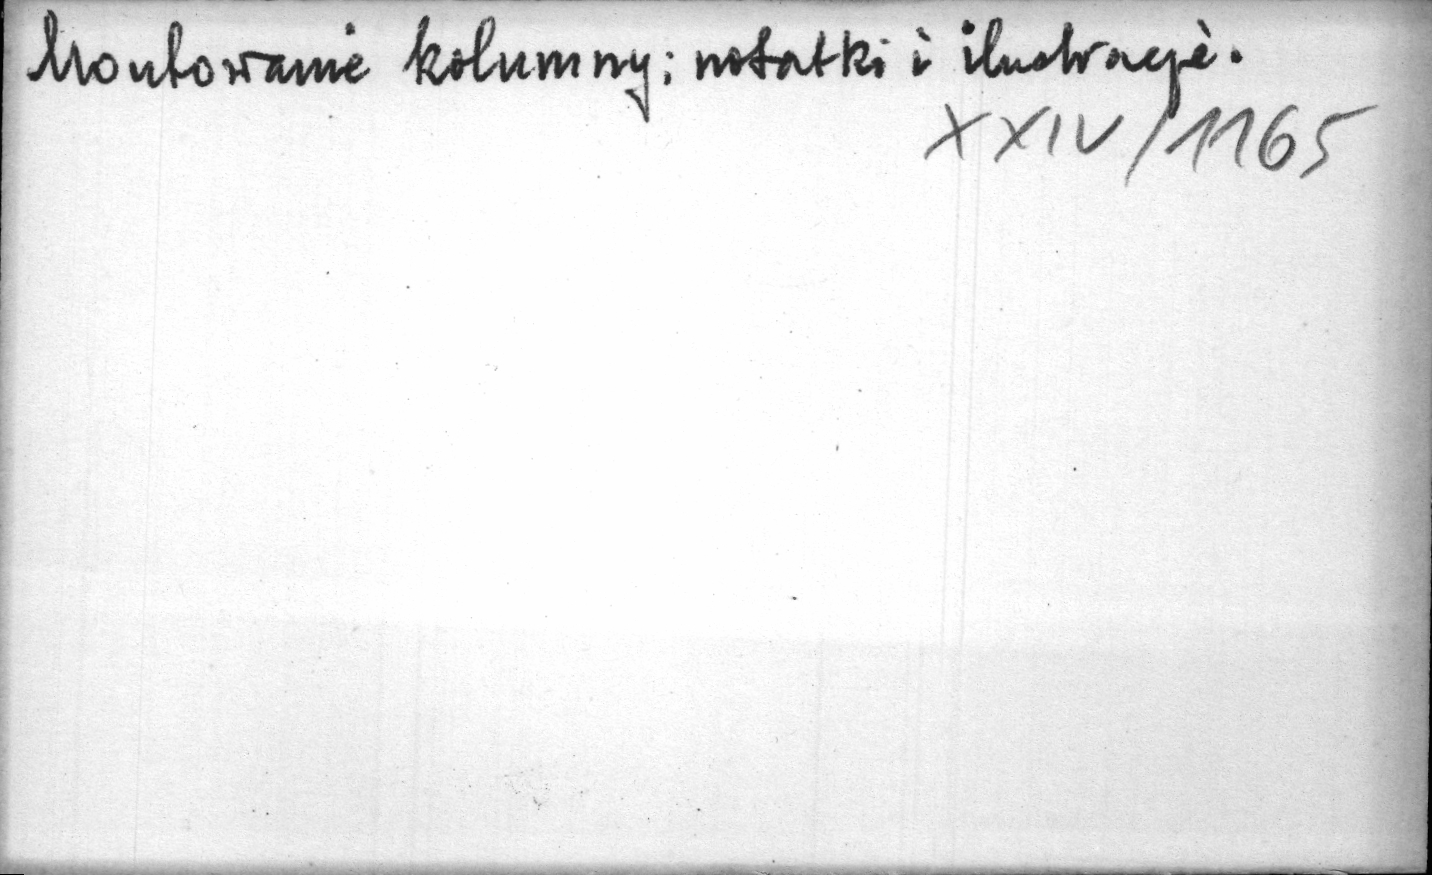 Montowanie kolumny; notatki i ilustracje.
XXIV/1165